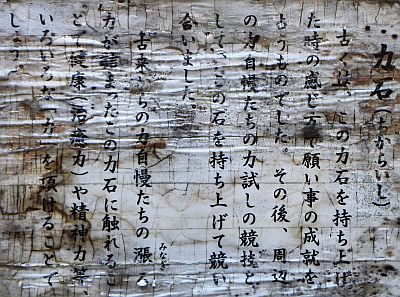 力石(ちからいし)
古くは、この力石を持ち上げ
た時の感じ方で願い事の成就を
占うものでした。その後、周辺
の力自慢たちの力試しの競技と
して、この石を持ち上げて競い
合いました。
古来からの力自慢たちの漲る
みなぎ
力が詰まったこの力石に触れるこ
とで健康(治癒力)や精神力等、
いろいろな「力」を頂けることで
しょう。